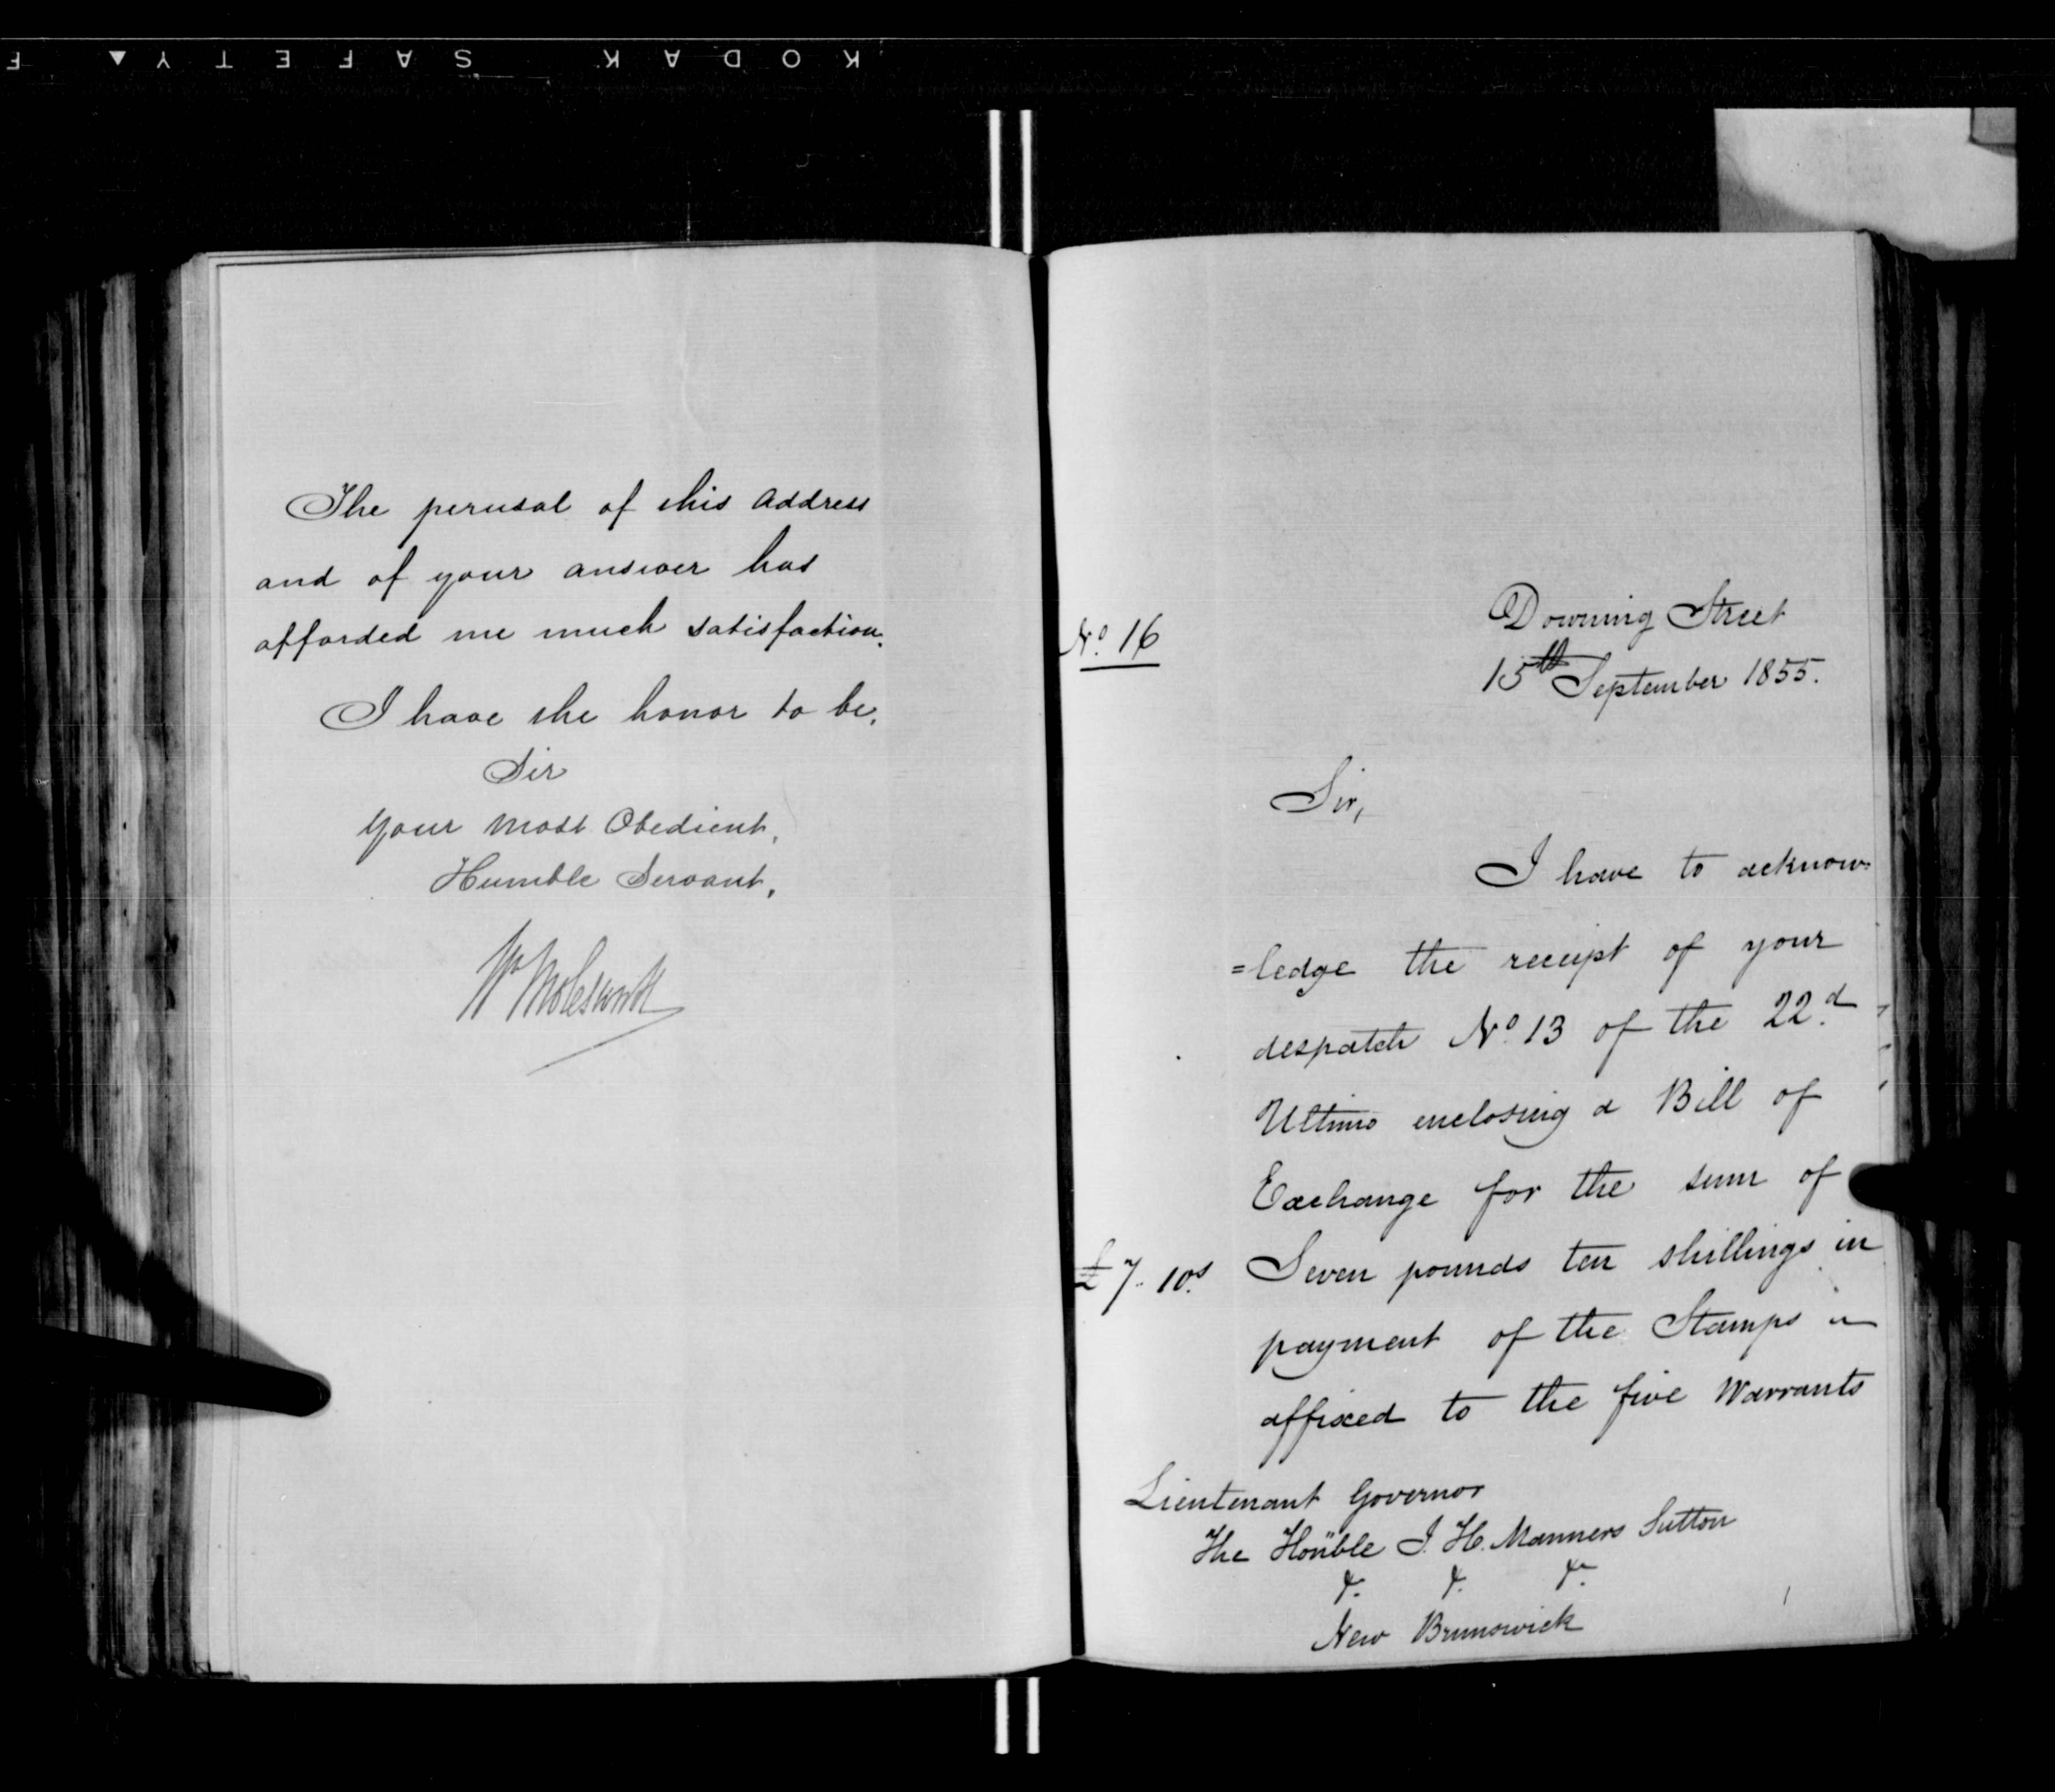 KODAK SAFETY F
The perusal of this Address
and of your answer has
afforded me much satisfaction.
I have the honor to be,
Sir
Your Most Obedient,
Humble Servant,
Wm Molesworth
No. 16
Downing Street
15th September 1855.
Sir,
I have to acknow=
=ledge the receipt of your
despatch No. 13 of the 22d.
Ultimo enclosing a Bill of
Exchange for the sum of
£7. 10s. Seven pounds ten shillings in
payment of the Stamps
affixed to the five Warrants
Lieutenant Governor
The Honble J. H. Manners Sutton
&. &. &.
New Brunswick